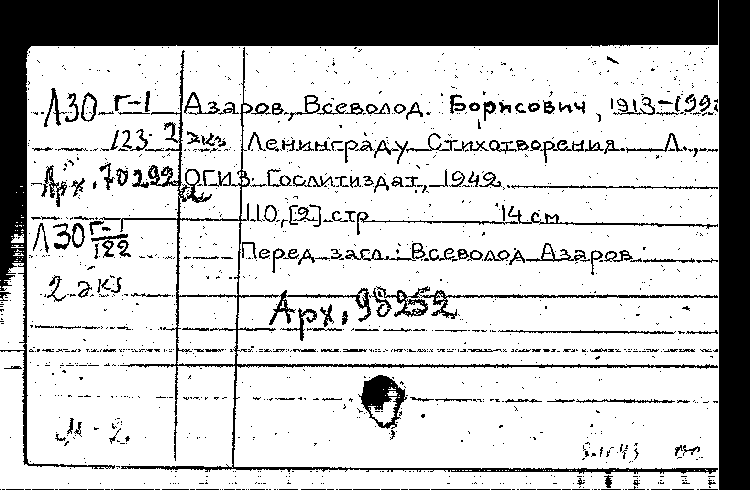 Л30 Г-1 Азаров, Всеволод Борисович, 1913-199
123 2 экз Ленинграду. Стихотворения. Л.,
Арх. 70292а ОГИЗ Гослитиздат, 1942.
Л30 Г-1 110,[2] стр 14 см
122 Перед загл.: Всеволод Азаров.
2 экз
Арх. 98252
М-2